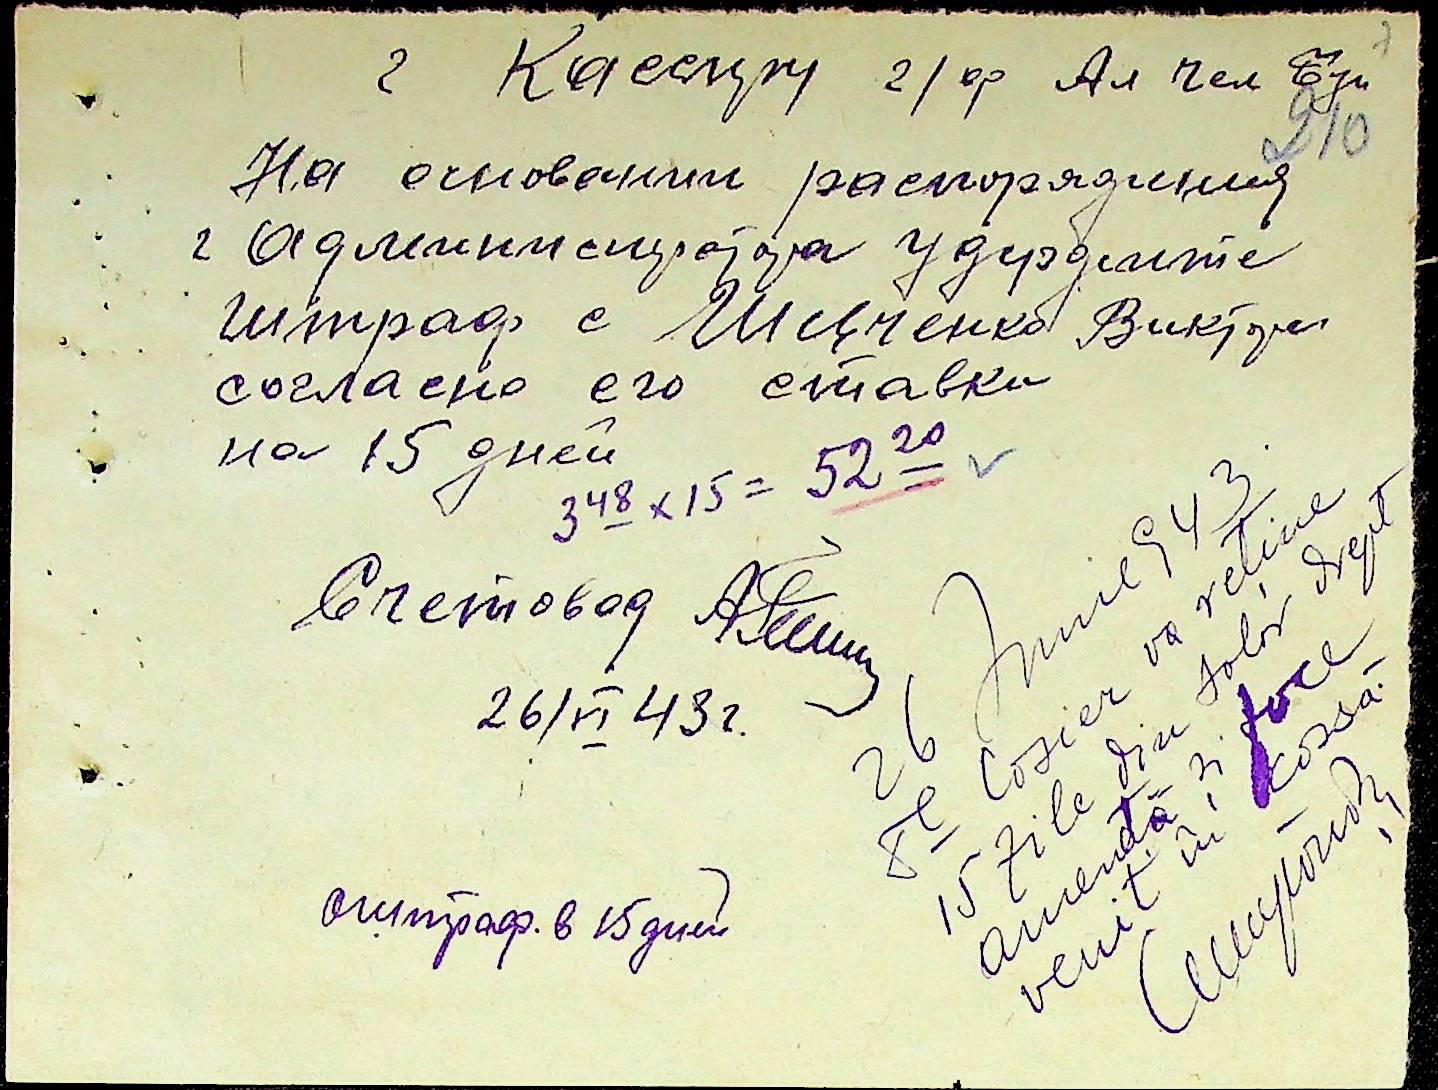 г Кассиру г/ф Ал Чел Буй
210
На основании распоряжения
г Администратора удержите
штраф с Шевченко Виктора
согласно его ставки
на 15 дней
3 48 x 15 = 52 20
Счетовод
26/VI 43 г.
оштраф. в 15 дней
26 Iunie 943.
Casier va reține
15 zile din solor drept
amendă și face
venit în kassă.